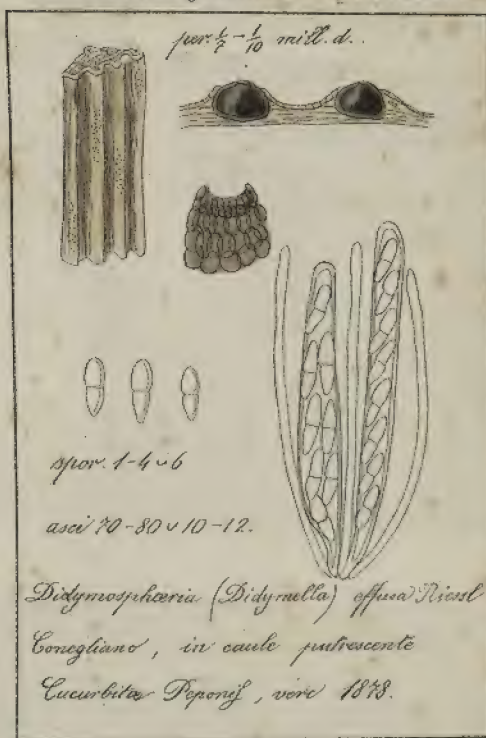 per. 1/7 - 1/10 mill. d.
asci 70-80 v 10-12.
Didymosphæria (Didymella) effusa Niessl
Conegliano, in caule putrescente
Cucurbitæ Peponis, vere 1878.